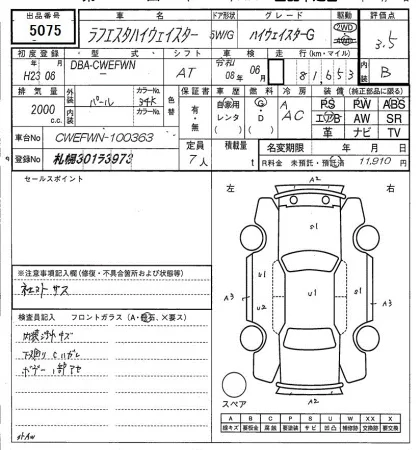 出品番号 車名 ドア形状 グレード 駆動 評価点
5075 ラフェスタハイウェイスター 5W/G ハイウェイスターG 2WD 3.5
初度登録 型式 シフト 車検 走行(km・マイル) 内装
H23 年 08 月 DBA-CWEFWN AT 令和 08年 06月 81,653 B
排気量 外装 パール カラーNo. 34K 色替 保証書 車歴 燃料 冷房 装備(純正部品に限る)
2000 c.c. 内装 カラーNo. 有・無 自家用 レンタ G・D AC PS PW ABS
エアB AW SR
革 ナビ TV
車台No CWEFWN-100363 定員 積載量 名変期限 年 月 日
登録No 札幌301ラ3973 7人 t R料金 未預託・預託済 11,910円
セールスポイント
左 右
A2
S1
A3 S1 U1 A3
U2
※注意事項記入欄(修復・不具合箇所および状態等)
検査員記入 フロントガラス(A・飛石、×要ス)
内装 汚 キズ
下廻り サビ
ボデー 1部
スペア
A2
A B C P S U W X XX
線キズ 要板金 腐蝕 要塗装 サビ 凹凸 補修跡 要交換 交換跡